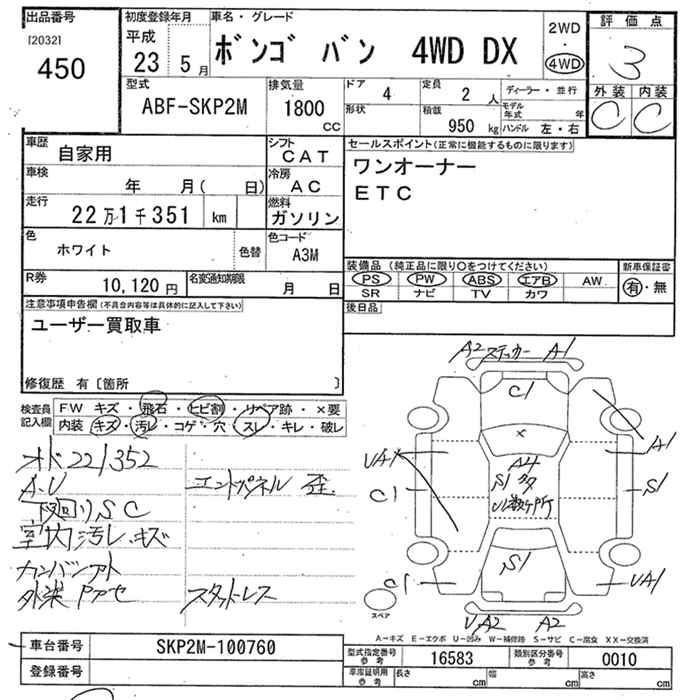 出品番号
[2032]
450
初度登録年月
平成
23 5月
車名・グレード
ボンゴ バン 4WD DX
2WD
・
4WD
評価点
3
外装 内装
C C
型式
ABF-SKP2M
排気量
1800
cc
ドア
4
形状
定員
2 人
積載
950 kg
ディーラー・並行
モデル年式 年
ハンドル 左・右
車歴
自家用
シフト
CAT
車検
年 月( 日)
冷房
AC
走行
22万1千351 km
燃料
ガソリン
色
ホワイト
色替
色コード
A3M
R券
10,120円
名変通知期限
月 日
セールスポイント(正常に機能するものに限ります)
ワンオーナー
ETC
装備品 (純正品に限り○をつけてください)
PS PW ABS エアB AW
SR ナビ TV カワ
新車保証書
有・無
後日品
注意事項申告欄(不具合内容等は具体的に記入して下さい)
ユーザー買取車
修復歴 有〔箇所 〕
検査員記入欄
FW キズ・飛石・ヒビ割・リペア跡・×要
内装 キズ・汚レ・コゲ・穴・スレ・キレ・破レ
オド221352
A.U
下廻りSC
室内汚レ.キズ
カンバンアト
エンドパネル 歪
スタッドレス
A2ステッカー A1
C1
×
UA1
A1
A4
S1
C1
S1
S1
C1
UA1
UA2 A2
スペア
A－キズ E－エクボ U－凹み W－補修跡 S－サビ C－腐食 XX－交換済
車台番号
SKP2M-100760
登録番号
型式指定番号
参考
16583
類別区分番号
参考
0010
車庫証明用
参考
長さ cm
幅 cm
高さ cm